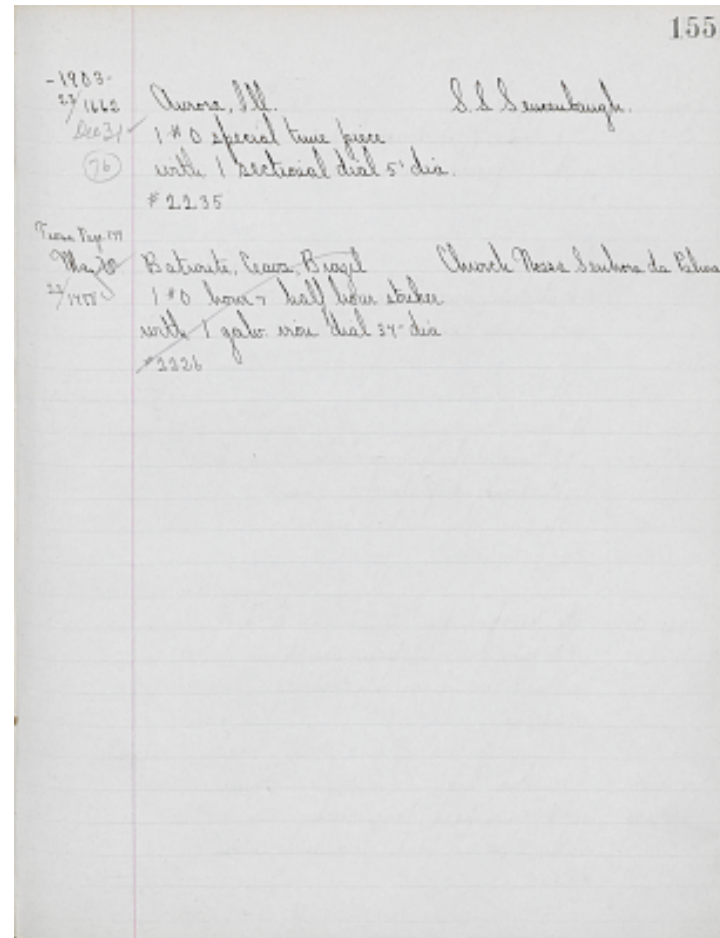 155
-1903-
22/1662 Aurora, Ill. S. S. Sencenbaugh.
Dec 31 1 # 0 special time piece
76 with 1 sectional dial 5' dia.
#2235
Page 177
May Baturite, Ceara, Brazil Church Nossa Senhora da
22/ 1 #0 hour & half hour striker
with 1 galv. iron dial dia
#2226